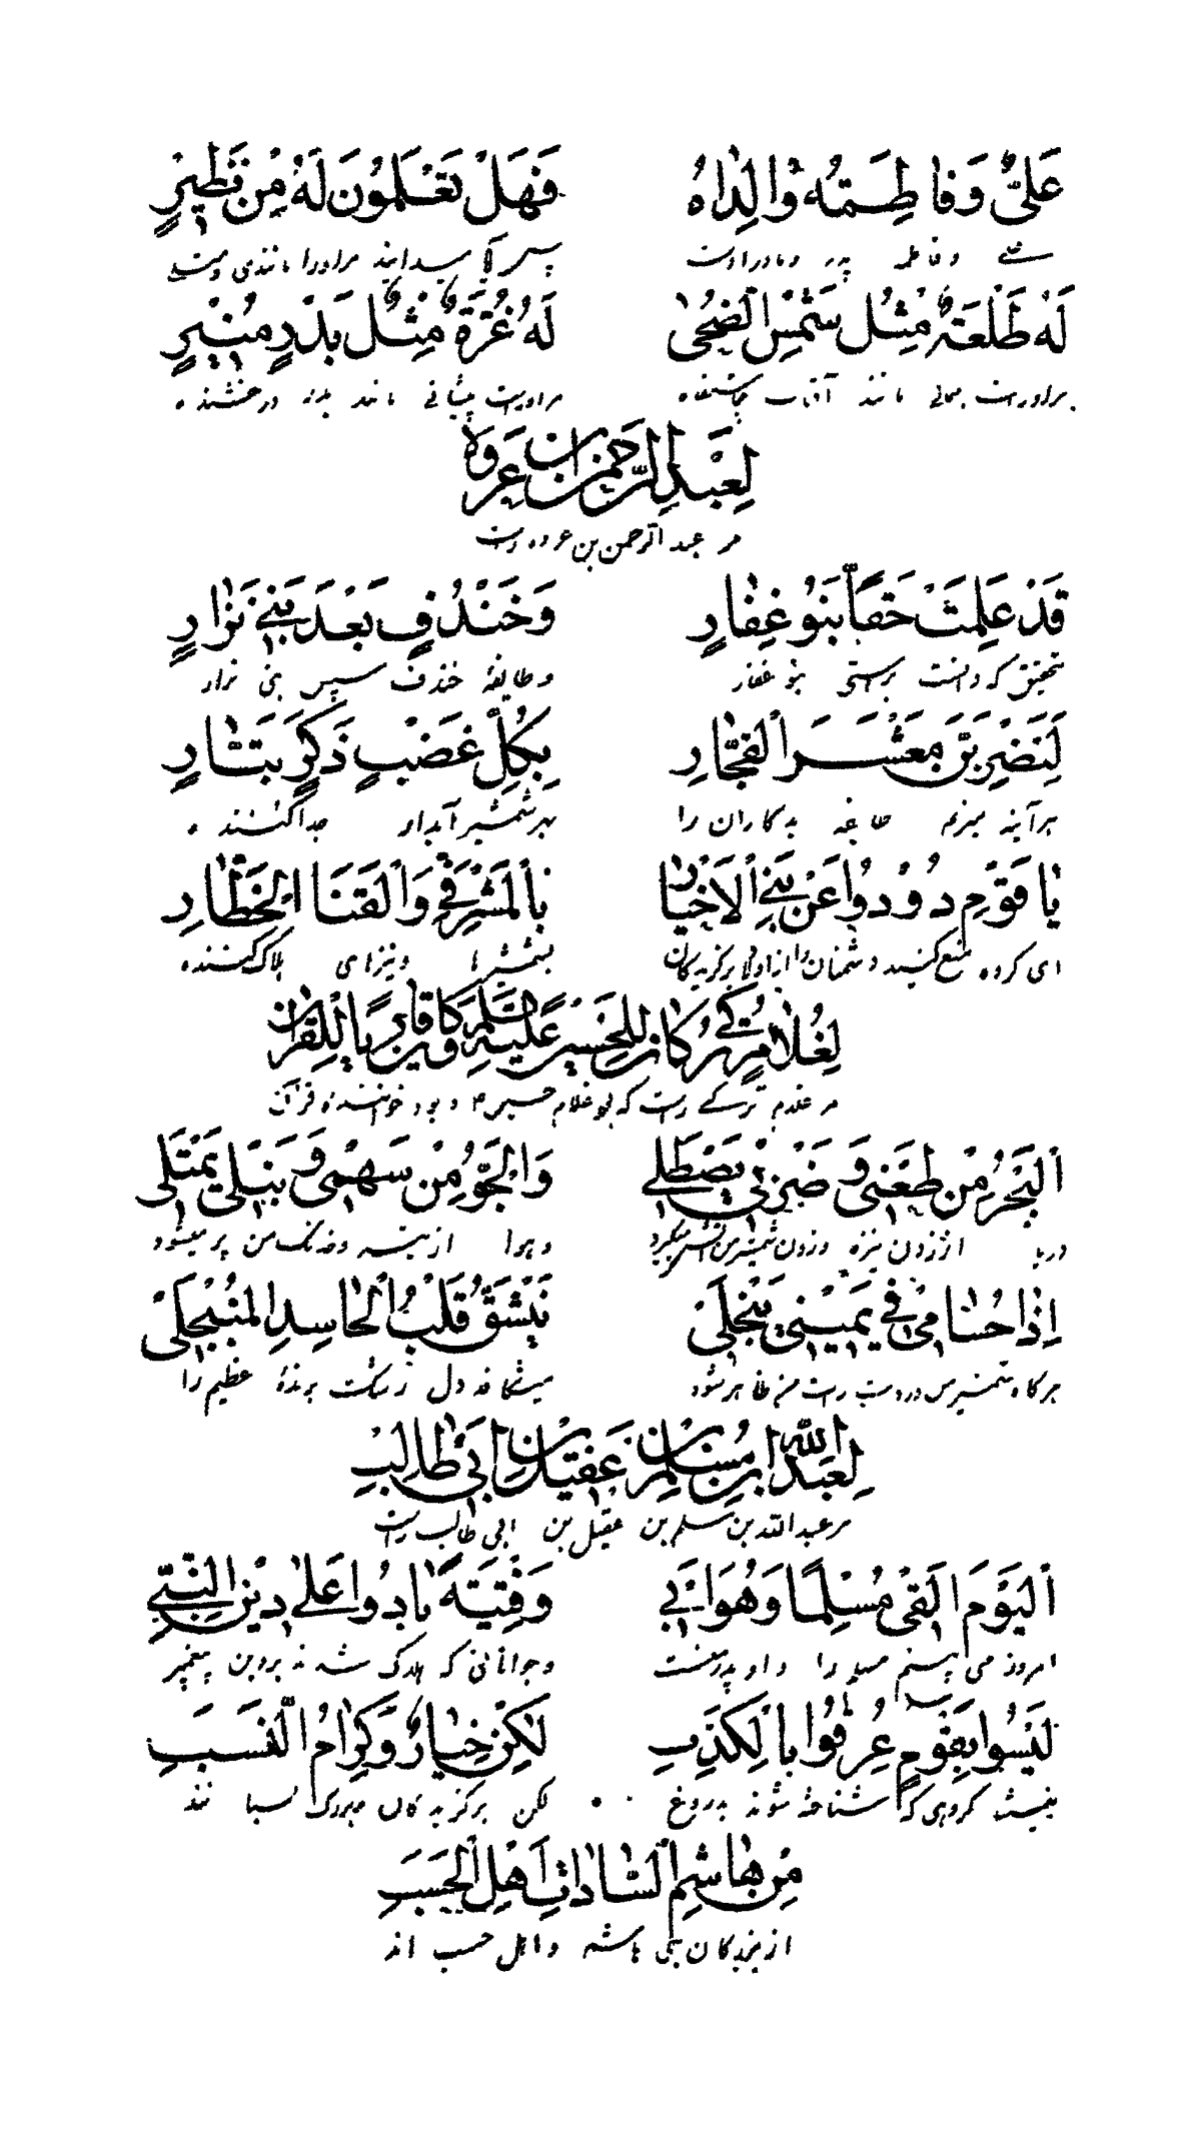 عَلِيٌّ وَفَاطِمَتُهُ وَالِدَاهُ فَهَلْ تَعْلَمُونَ لَهُ مِنْ نَظِيرٍ
علی وفاطمه پدر ومادر اوست پس آیا میدانید مر او را مانندی
لَهُ طَلْعَةٌ مِثْلُ شَمْسِ الضُّحَى لَهُ غُرَّةٌ مِثْلُ بَدْرٍ مُنِيرٍ
مر اوراست مانند آفتاب چاشتگاه مر اوراست پیشانی مانند بدر درخشنده
لِعَبْدِ الرَّحْمٰنِ بْنِ عُرْوَةَ
مر عبد الرحمن بن عروه راست
قَدْ عَلِمَتْ حَقًّا بَنُو غِفَارِ وَخَنْدُفٍ بَعْدَ بَنِي نَزَارِ
بتحقیق که دانست براستی بنو غفار وطایفهٔ خندف سپس بنی نزار
لَنَضْرِبَنَّ مَعْشَرَ الْفُجَّارِ بِكُلِّ عَضْبٍ ذَكَرٍ بَتَّارِ
هرآینه میزنم طایفه بدکاران را بهر شمشیر آبدار جدا کننده
يَا قَوْمِ ذُودُوا عَنْ بَنِي الْأَخْيَارِ بِالْمَشْرَفِيِّ وَالْقَنَا الْخَطَّارِ
ای کروه منع کنید دشمنان را از اولاد برگزیدکان بشمشیرها ونیزهای هلاک کننده
لِغُلَامٍ تُرْكِيٍّ كَانَ لِلْحُسَيْنِ عَلَيْهِ السَّلَمُ وَكَانَ قَارِيًا لِلْقُرْآنِ
مر غلام ترکی راست که بود غلام حسین ع وبود خواننده قرآن
اَلْبَحْرُ مِنْ طَعْنِي وَضَرْبِي يَصْطَلِي وَالْجَوُّ مِنْ سَهْمِي وَنَبْلِي يَمْتَلِي
دریا از زدن نیزه وزدن شمشیر من وهوا از وخدنک من پر میشود
إِذَا حُسَامِي فِي يَمِينِي يَنْجَلِي يَنْشَقُّ قَلْبُ الْحَاسِدِ الْمُبَجَّلِ
هرکاه شمشیر من در دست راست من ظاهر شود میشکافد دل رشک برندهٔ عظیم را
لِعَبْدِ اللّٰهِ ابْنِ مُسْلِمِ بْنِ عَقِيلِ بْنِ أَبِي طَالِبٍ
مر عبد الله بن مسلم بن عقیل بن ابی طالب راست
اَلْيَوْمَ أَلْقَى مُسْلِمًا وَهُوَ أَبِي وَفِتْيَةً بَادُوا عَلَى دِينِ النَّبِيِّ
امروز می بینم مسلم را واو پدر منست وجوانانی که هلاک شدند بر دین پیغمبر
لَيْسُوا بِقَوْمٍ عُرِفُوا بِالْكَذِبِ لٰكِنْ خِيَارٌ وَكِرَامُ النَّسَبِ
نیستند کروهی که شناخته شوند بدروغ لکن برگزیدکان
مِنْ هَاشِمِ السَّادَاتِ أَهْلِ الْحَسَبِ
از بزرکان بنی هاشم واهل حسب اند